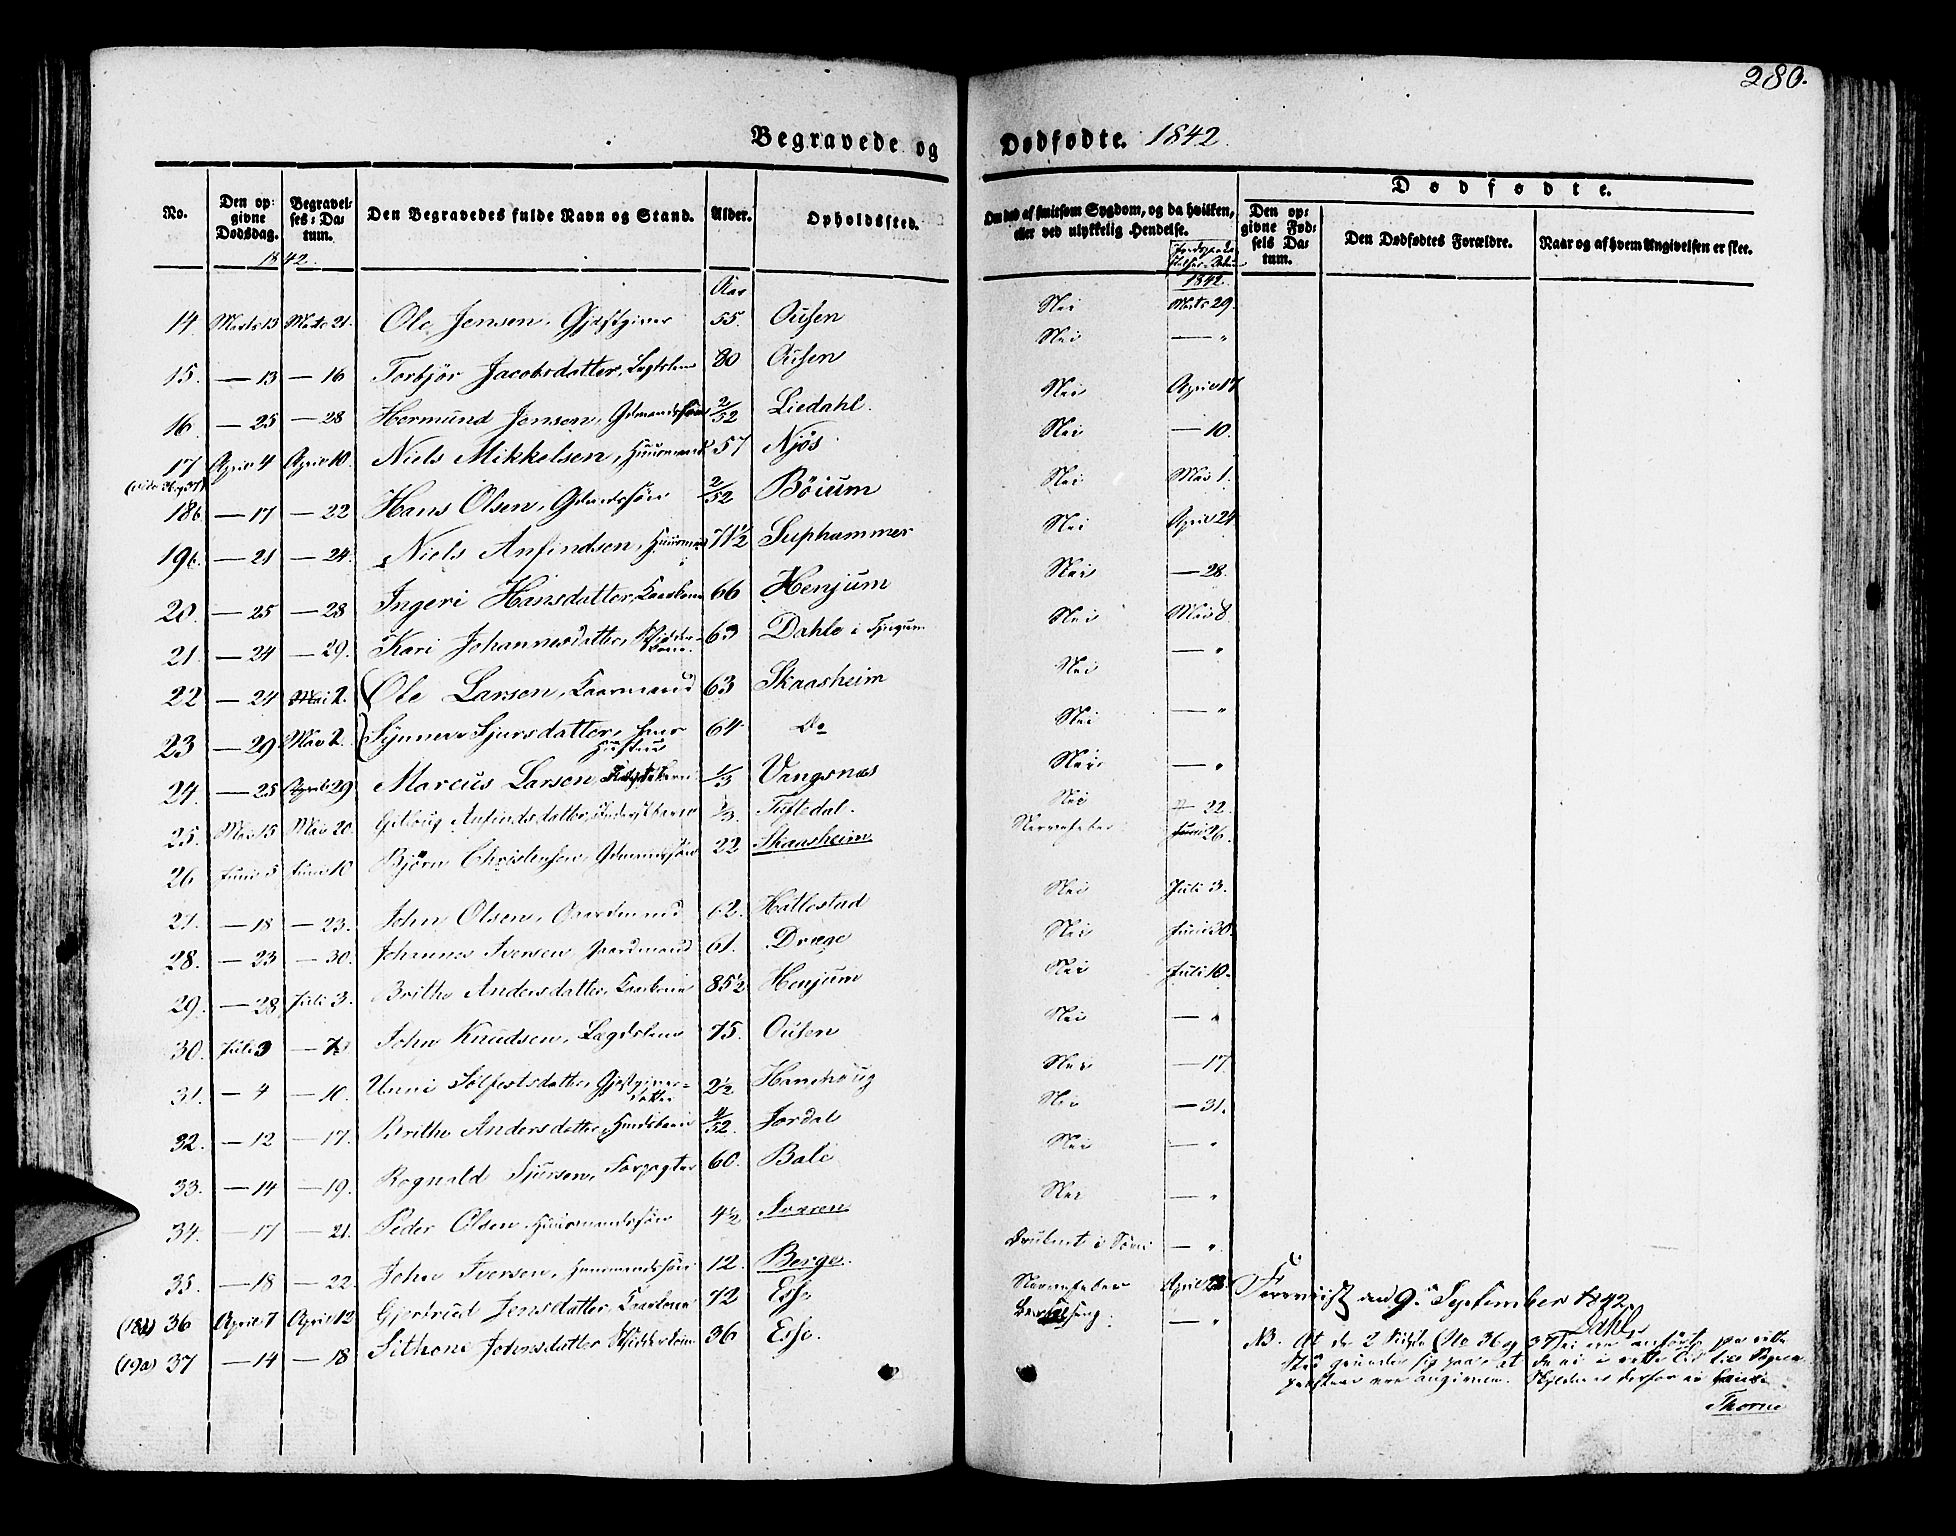 280.
Begravede og Dødfødte. 1842.
No.
Den opgivne Dødsdag.
Begravelses-Datum.
Den Begravedes fulde Navn og Stand.
Alder.
Opholdssted.
Om død af smitsom Sygdom, og da hvilken, eller ved ulykkelig Hendelse.
Dødfødte.
Den opgivne Fødsels Datum.
Den Dødfødtes Forældre.
Naar og af hvem Angivelsen er skee.
1842.
1842.
Aar
14. Marts 13 Marts 21. Ole Jensen, Gjæstgiver 55. Ousen Nei Marts 29.
15. — 13 — 16 Torbjør Jacobsdatter, Lægdslem 80 Ousen Nei — "
16. — 25 — 28 Hermund Jensen, Gdmandssøn 2/52 Liedahl. Nei April 17
17 April 4 April 10. Niels Mikkelsen, Huusmand 57 Njøs Nei — 10.
(vide 36 og 37)
18b. — 17 — 22 Hans Olsen, Gdmandssøn 2/52 Böium Nei Mai 1.
19b. — 21 — 24. Niels Anfindsen, Huusmand 71½ Suphammer Nei April 24
20. — 25 — 28 Ingeri Hansdatter, Kaarkone 66 Henjum Nei — 28.
21. — 24 — 29. Kari Johannesdatter, 63 Dahle i Fjugum Nei Mai 8.
22 — 24 Mai 2. Ole Larsen, Kaarmand 63 Skaasheim Nei — "
23 — 29 Mai 2. Synneve Sjursdatter, hans Hustru 64 Do Nei — "
24. — 25 April 29 Marcus Larsen, 1/3 Vangsnæs Nei — "
25. Mai 15 Mai 20. Anfindsdatter, 1/3. Tuftedal. Nei — 22.
26 Juni 5 Juni 10 Björn Christensen, Gdmandssøn 22 Skaasheim Nervefeber. Juni 26.
27. — 18 — 23. John Olsen, Gaardmand 62. Hallestad Nei Juli 3.
28. — 23 — 30. Johannes Iversen, Gaardmand 61. Dræge Nei Juni 30.
29. — 28. Juli 3. Brithe Andersdatter, Kaarkone 85½ Henjum Nei Juli 10.
30. Juli 3 — 7 John Knudsen, Lægdslem 75. Ousen Nei — "
31. — 4 — 10. Unni Sölfestsdatter, Gjæstgiverdatter 2½ Hamhoug Nei — 17.
32. — 12 — 17. Brithe Andersdatter, 4/52. Jordal Nei — 31.
33. — 14 — 19. Rognald Sjursen, Forpagter 60. Bale Nei — "
34. — 17 — 21. Peder Olsen, Huusmandssøn 4½ Nei — "
35. — 18 — 22. John Iversen, Huusmandssøn 12. Berge. Druknet i Söen — "
(18a) 36 April 7 April 12 Gjertrud Jensdatter, Kaarkone 72 Esse Nervefeber April 23.
(19a) 37 — 14 — 18 Sithone Johnsdatter 36 Esse. Barselseng. — "
den 9. September 1842.
Dahl
NB. At de 2 Sidste (No 36 og 37) ei ere anførte paa rette
Sted grunder sig paa, at de ei i rette Tid til
vare angivne. Skylden er derfor ei
Thorne